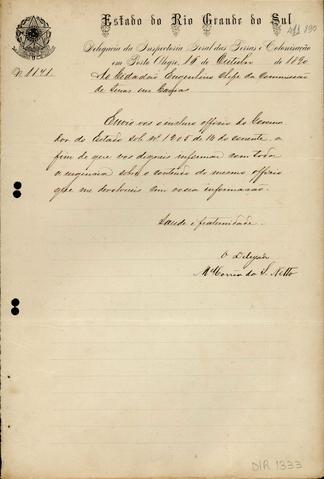 Estado do Rio Grande do Sul
Delegacia da Inspectoria Geral das Terras e Colonisação
em Porto Alegre, 18 de Outubro de 1890
N. 1141.
Ao Cidadão Engenheiro Chefe da Commissão
de Terras em Caxias
Envio-vos o incluso officio do Governa
dor do Estado sob nº 1205 de 16 do corrente, a
fim de que vos digneis informar com toda
a urgencia sobre o conteúdo do mesmo officio
que me devolvereis com vossa informação.
Saude e fraternidade.
O Delegado
Mel Correa da S. Netto
DIR 1333